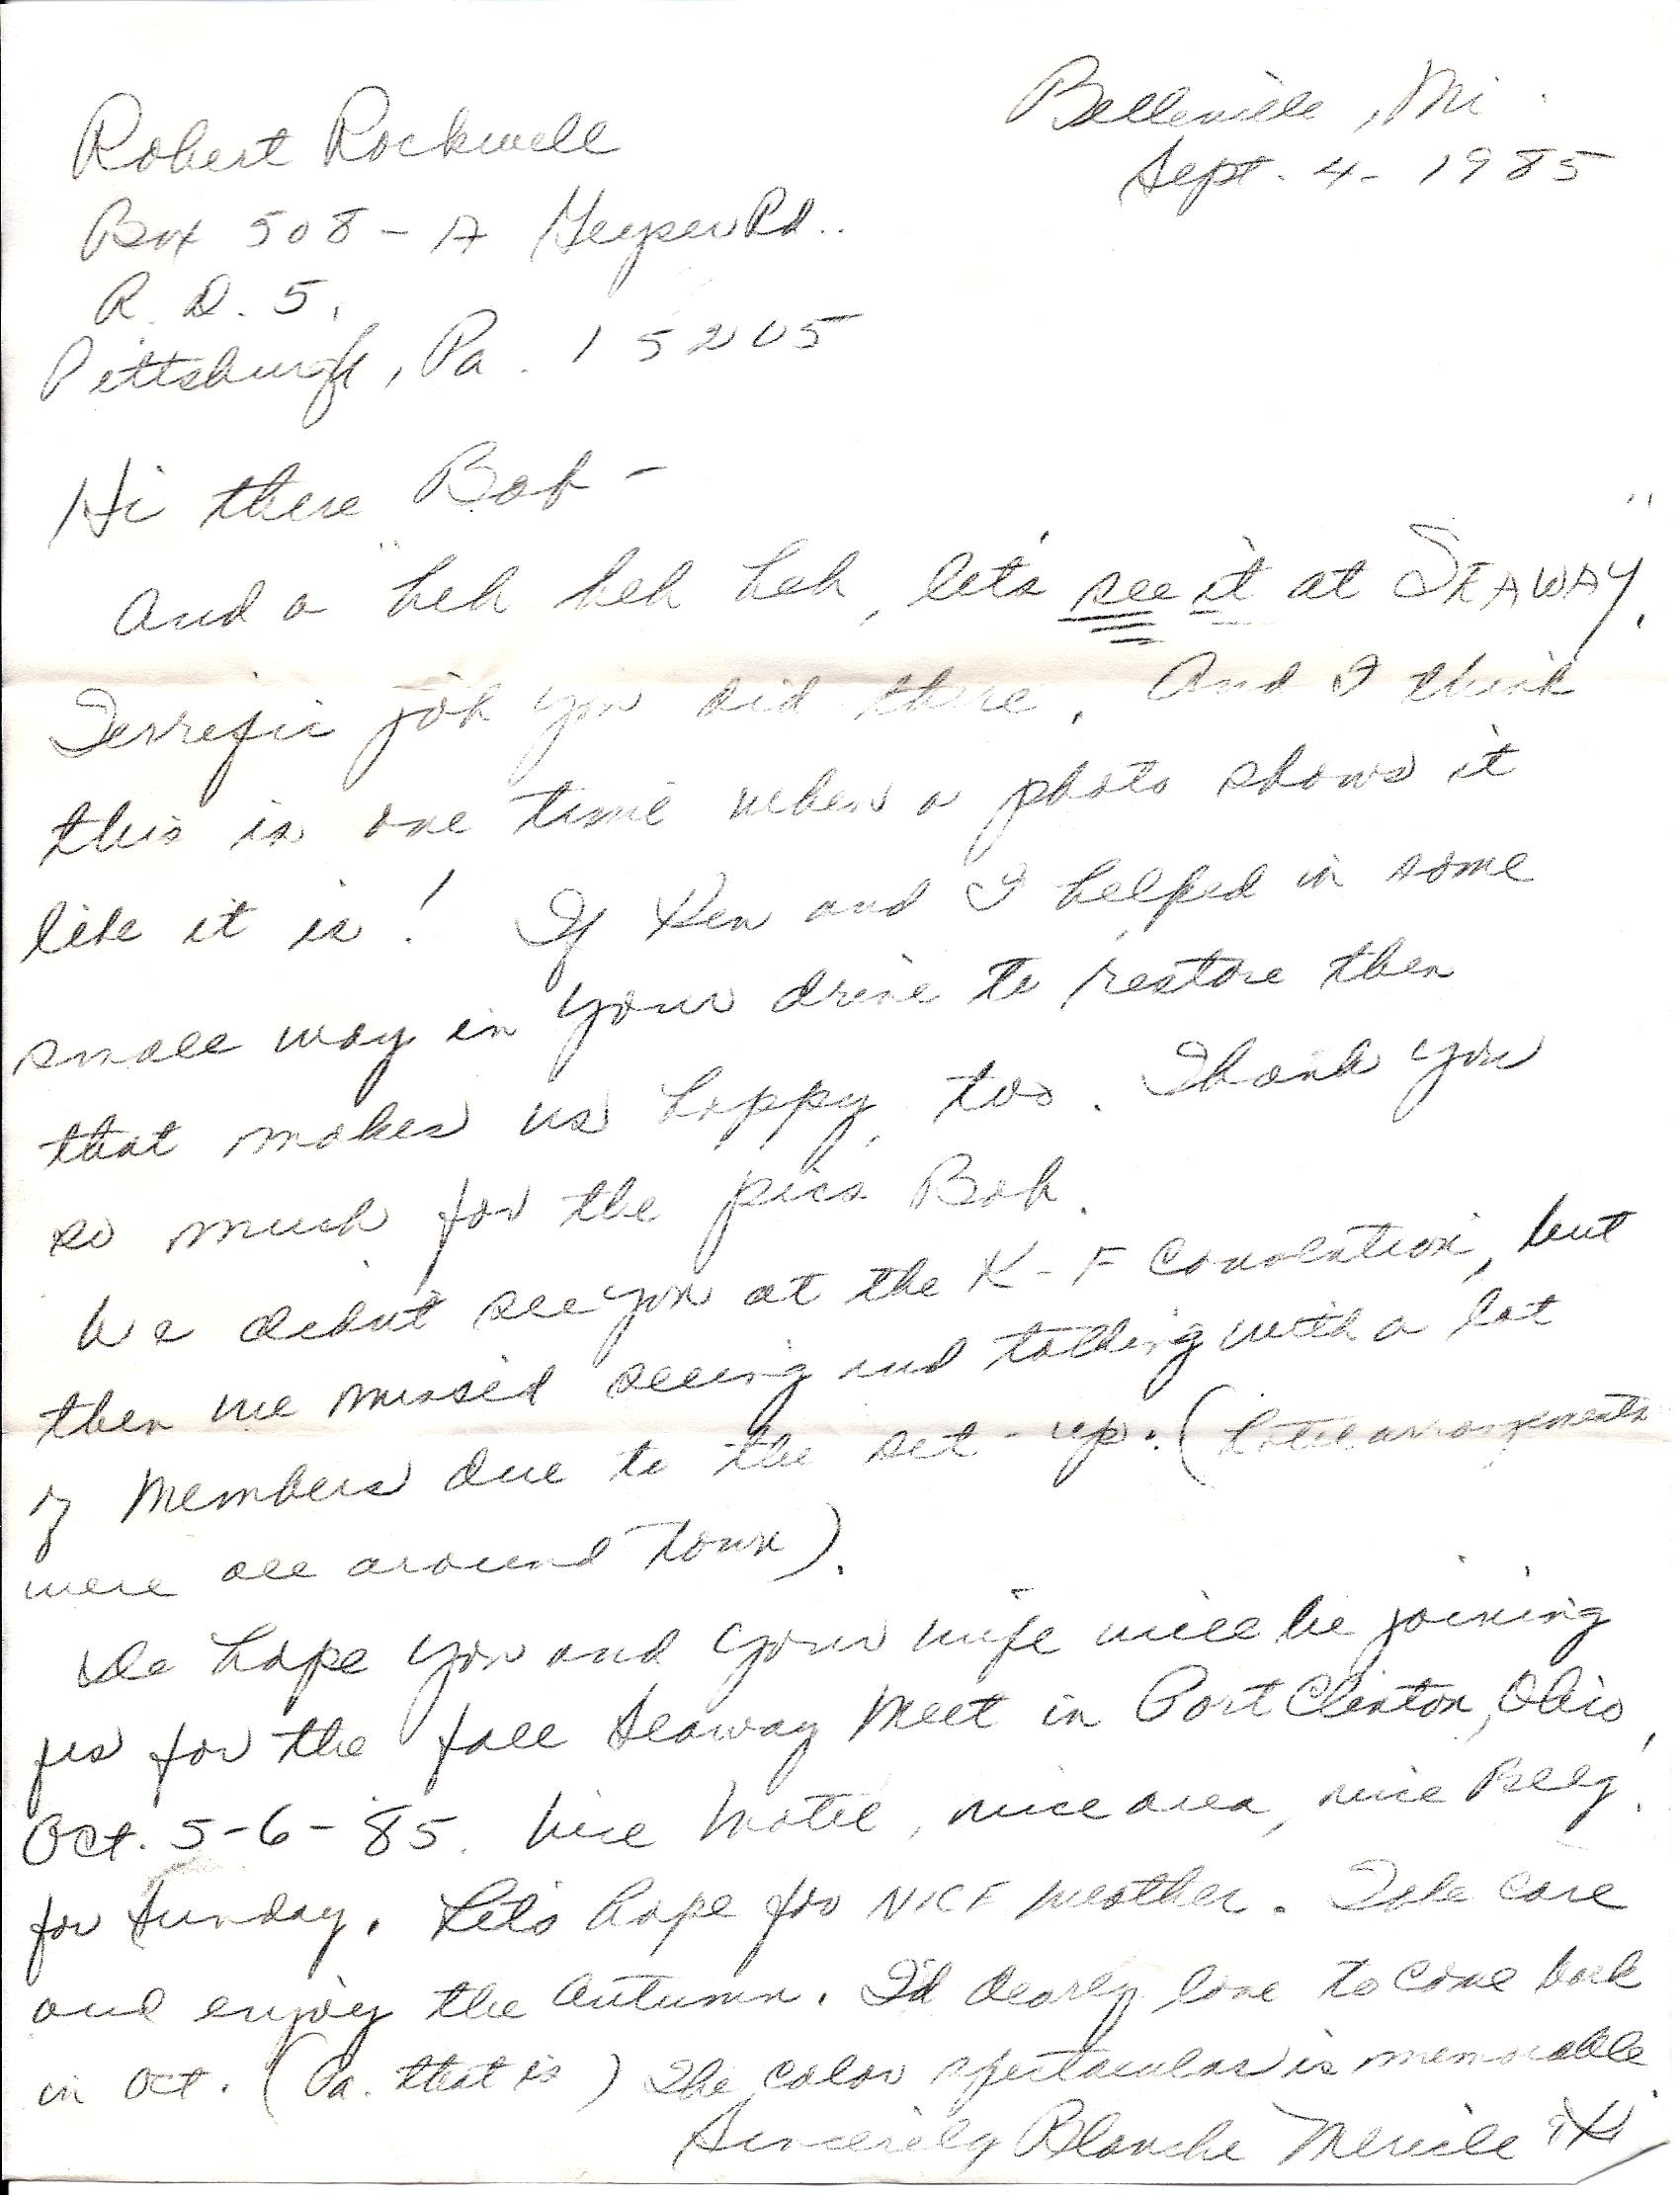 Belleville, Mi.
Sept. 4 - 1985
Robert Rockwell
Box 508 - A Geyser Rd..
R. D. 5.
Pittsburgh, Pa. 15205
Hi there Bob -
And a "heh heh heh, let's see it at SEAWAY".
Terrific job you did there. And I think
this is one time when a photo shows it
like it is! If Ken and I helped in some
small way in your drive to restore then
that makes us happy, too. Thank you
so much for the pics Bob.
We didn't see you at the K-F Convention, but
then we missed seeing and talking with a lot
of members due to the set-up. (hotel arrangements
were all around town).
We hope you and your wife will be joining
us for the fall Seaway Meet in Port Clinton, Ohio,
Oct. 5-6-'85. Nice Motel, nice area, nice Bldg.
for Sunday. Let's hope for NICE weather. Take care
and enjoy the Autumn. I'd dearly love to come back
in Oct. (Pa. that is) The color spectacular is memorable
Sincerely Blanche Merile